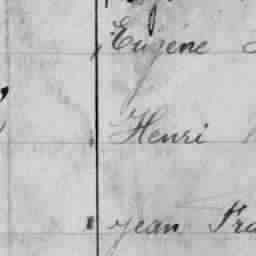 Eugene
Henri
Jean